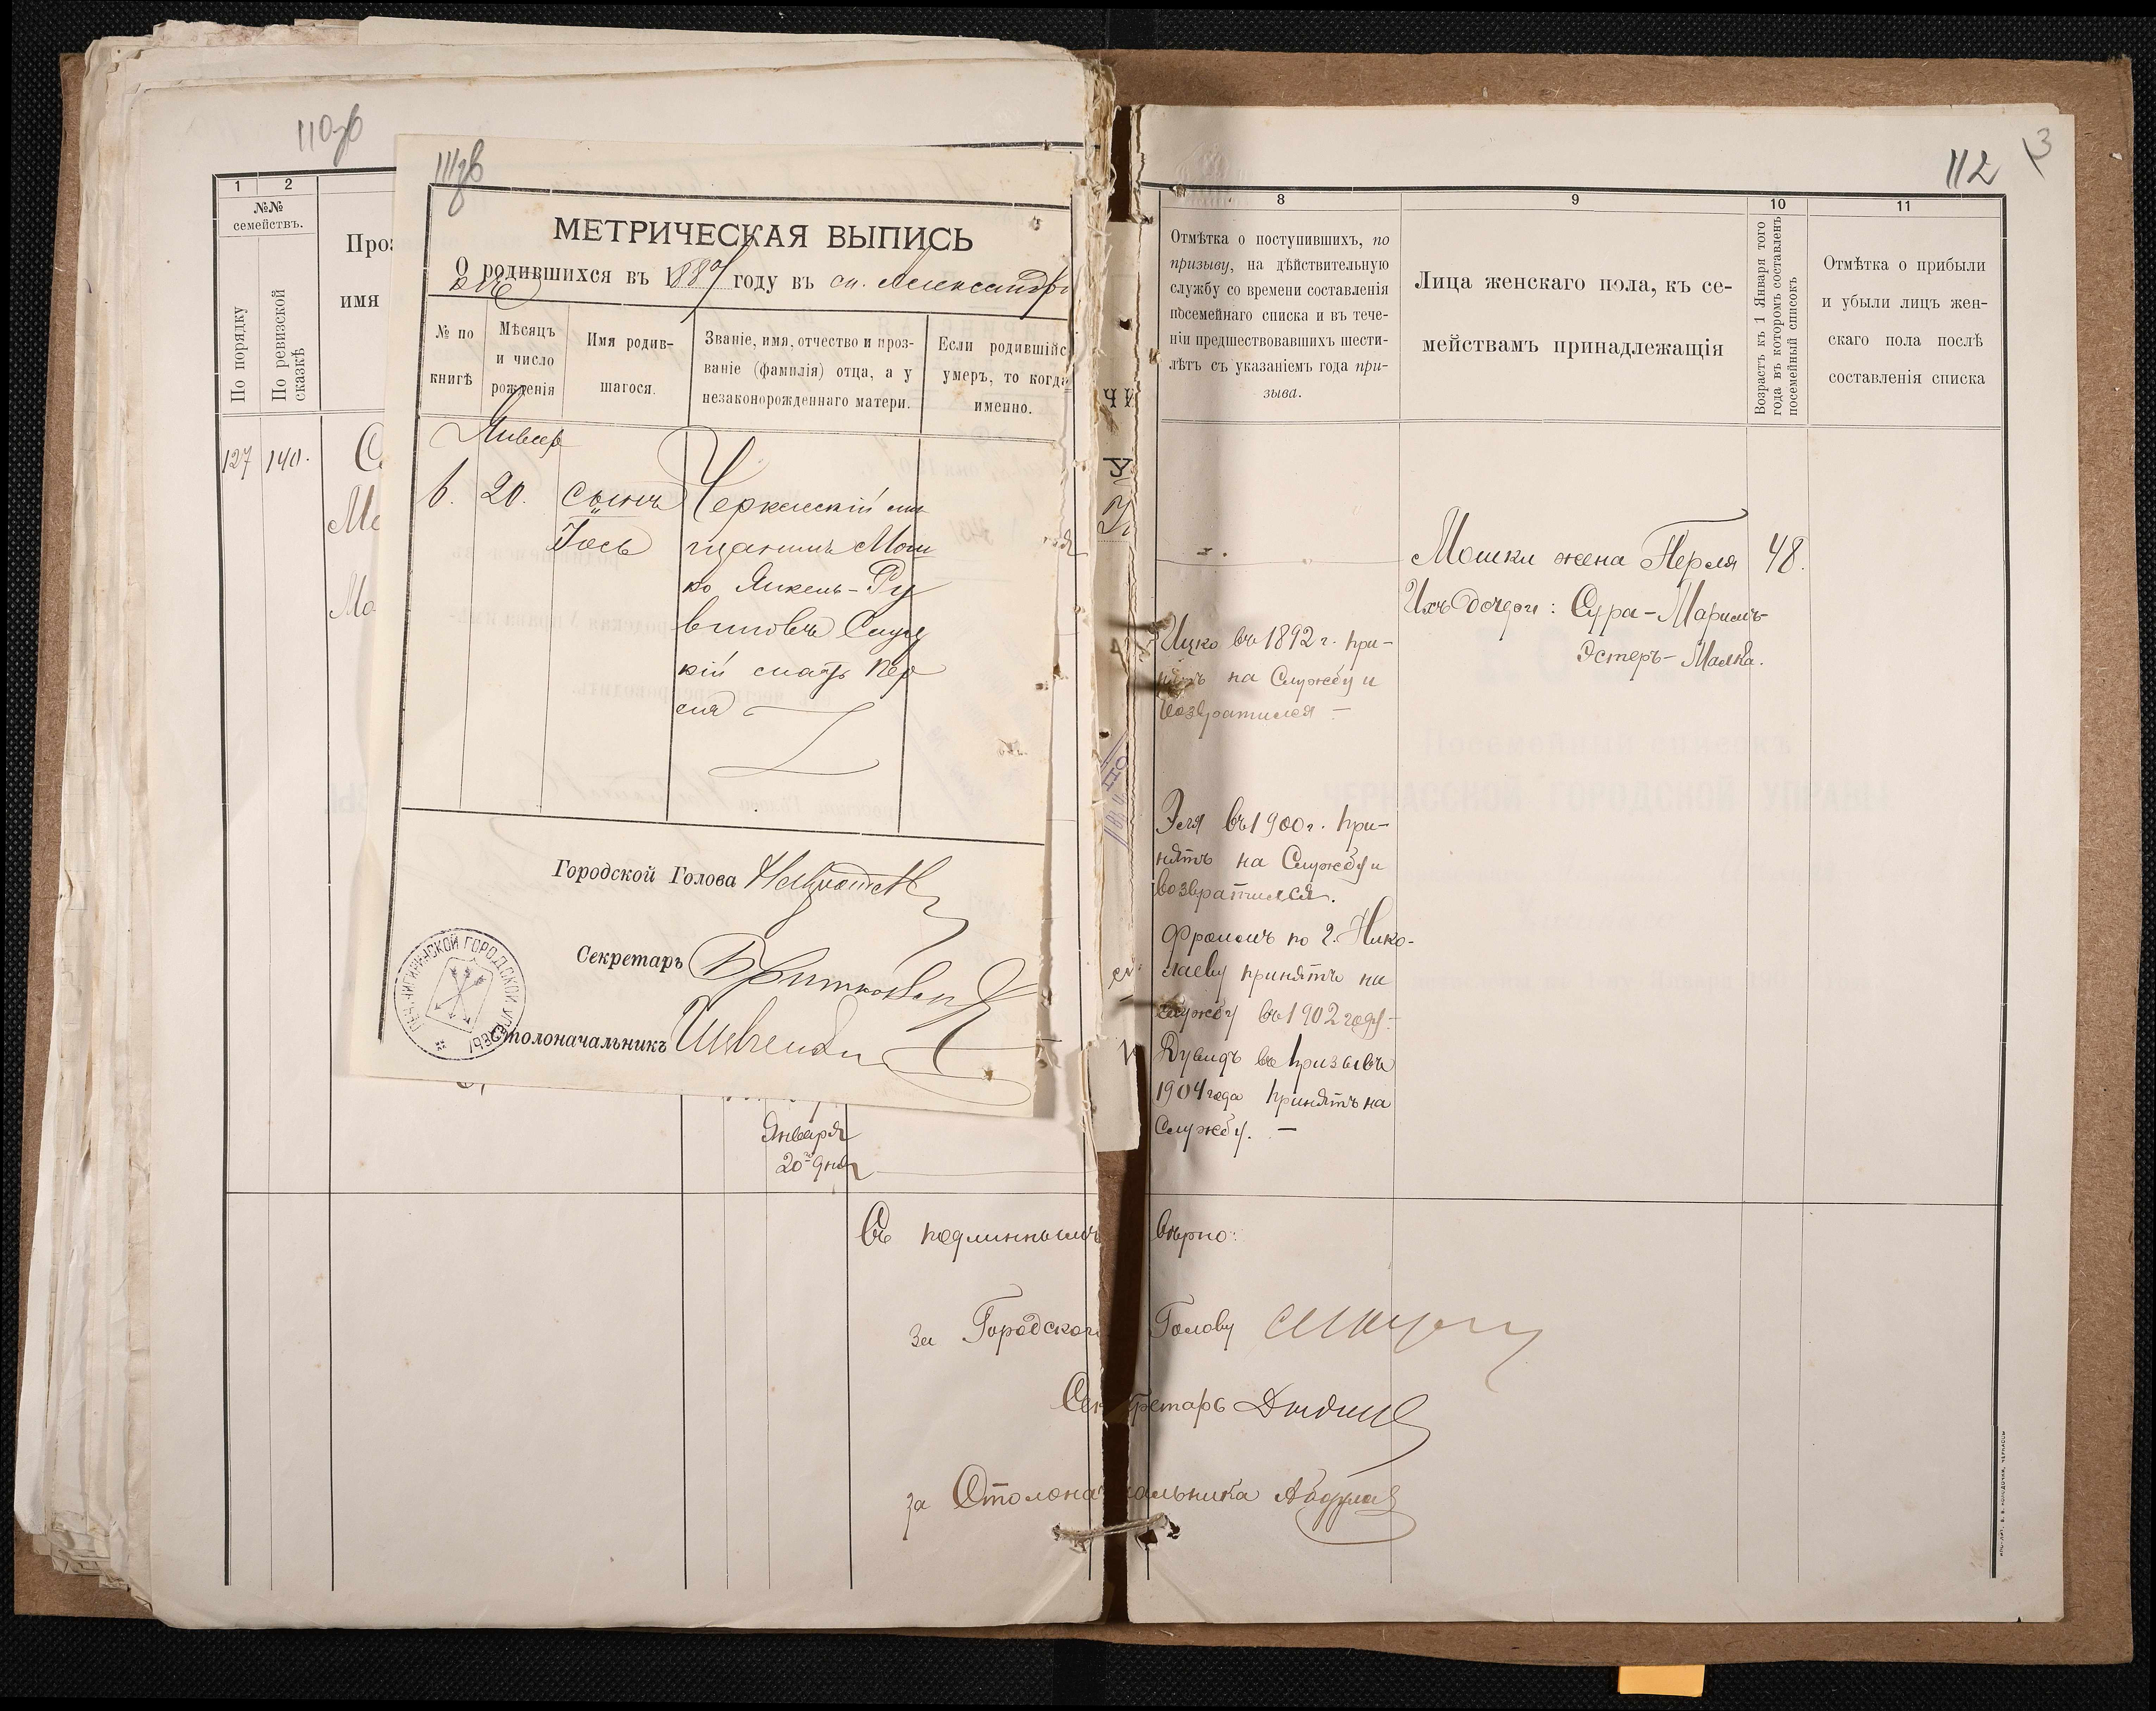 110об
1
2
№№
семействъ.
По порядку
По ревизской
сказкѣ
Проз
имя
127
140.
С
Мо
Мо
Января
20го дня
111об
МЕТРИЧЕСКАЯ ВЫПИСЬ
О родившихся въ 188 году въ м. Александров
№ по
книгѣ
Мѣсяцъ
и число
рожденія
Имя родив-
шагося.
Званіе, имя, отчество и проз-
ваніе (фамилія) отца, а у
незаконорожденнаго матери.
Если родившійс
умеръ, то когда
именно.
Январ
6.
20.
Сынъ
Іось
Черкаскій мѣ
щанинъ Мош
ко Янкель-Ру
виновъ
кій мать Пер
ля
Городской Голова
Секретарь
Столоначальникъ
ПЕЧ. ЧИГИРИНСКОЙ ГОРОДСКОЙ УПРАВЫ
Съ подлиннымъ вѣрно:
За Городского Голову
Секретарь
за Столоначальника
112
3
8
Отмѣтка о поступившихъ, по
призыву, на дѣйствительную
службу со времени составленія
посемейнаго списка и въ тече-
ніи предшествовавшихъ шести-
лѣтъ съ указаніемъ года при-
зыва.
9
Лица женскаго пола, къ се-
мействамъ принадлежащія
10
Возрастъ къ 1 Января того
года въ которомъ составленъ
посемейный списокъ
11
Отмѣтка о прибыли
и убыли лицъ жен-
скаго пола послѣ
составленія списка
Мошки жена Перля
48.
Ихъ дочери: Сура-Маримъ-
Эстеръ-Малка.
Ицко въ 1892 г. при-
нятъ на Службу и
возвратился —
Эля въ 1900 г. при-
нятъ на Службу и
возвратился.
Фроимъ по г. Нико-
лаеву принятъ на
службу въ 1902 году. —
Дувидъ въ призывъ
1904 года принятъ на
Службу. —